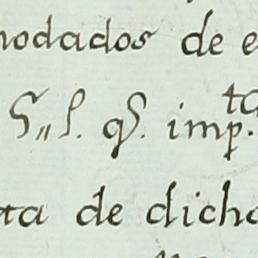 nodados de e
S,, S. qS. imp.ta
ta de dicho